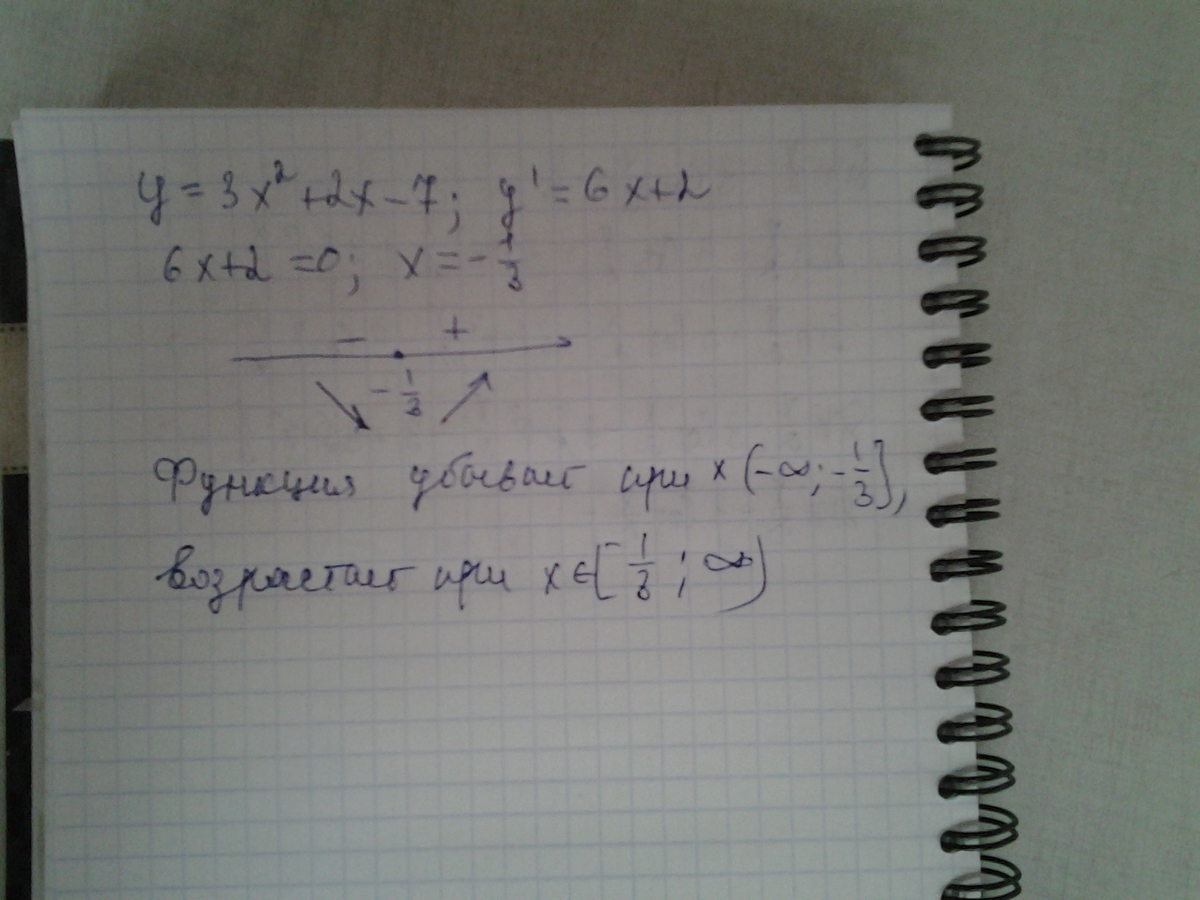 y = 3x² + 2x - 7; y' = 6x+2
6x+2 = 0; x = -1/3
- +
-1/3
Функция убывает при x (-∞; -1/3],
возрастает при x ∈ [-1/3; ∞)